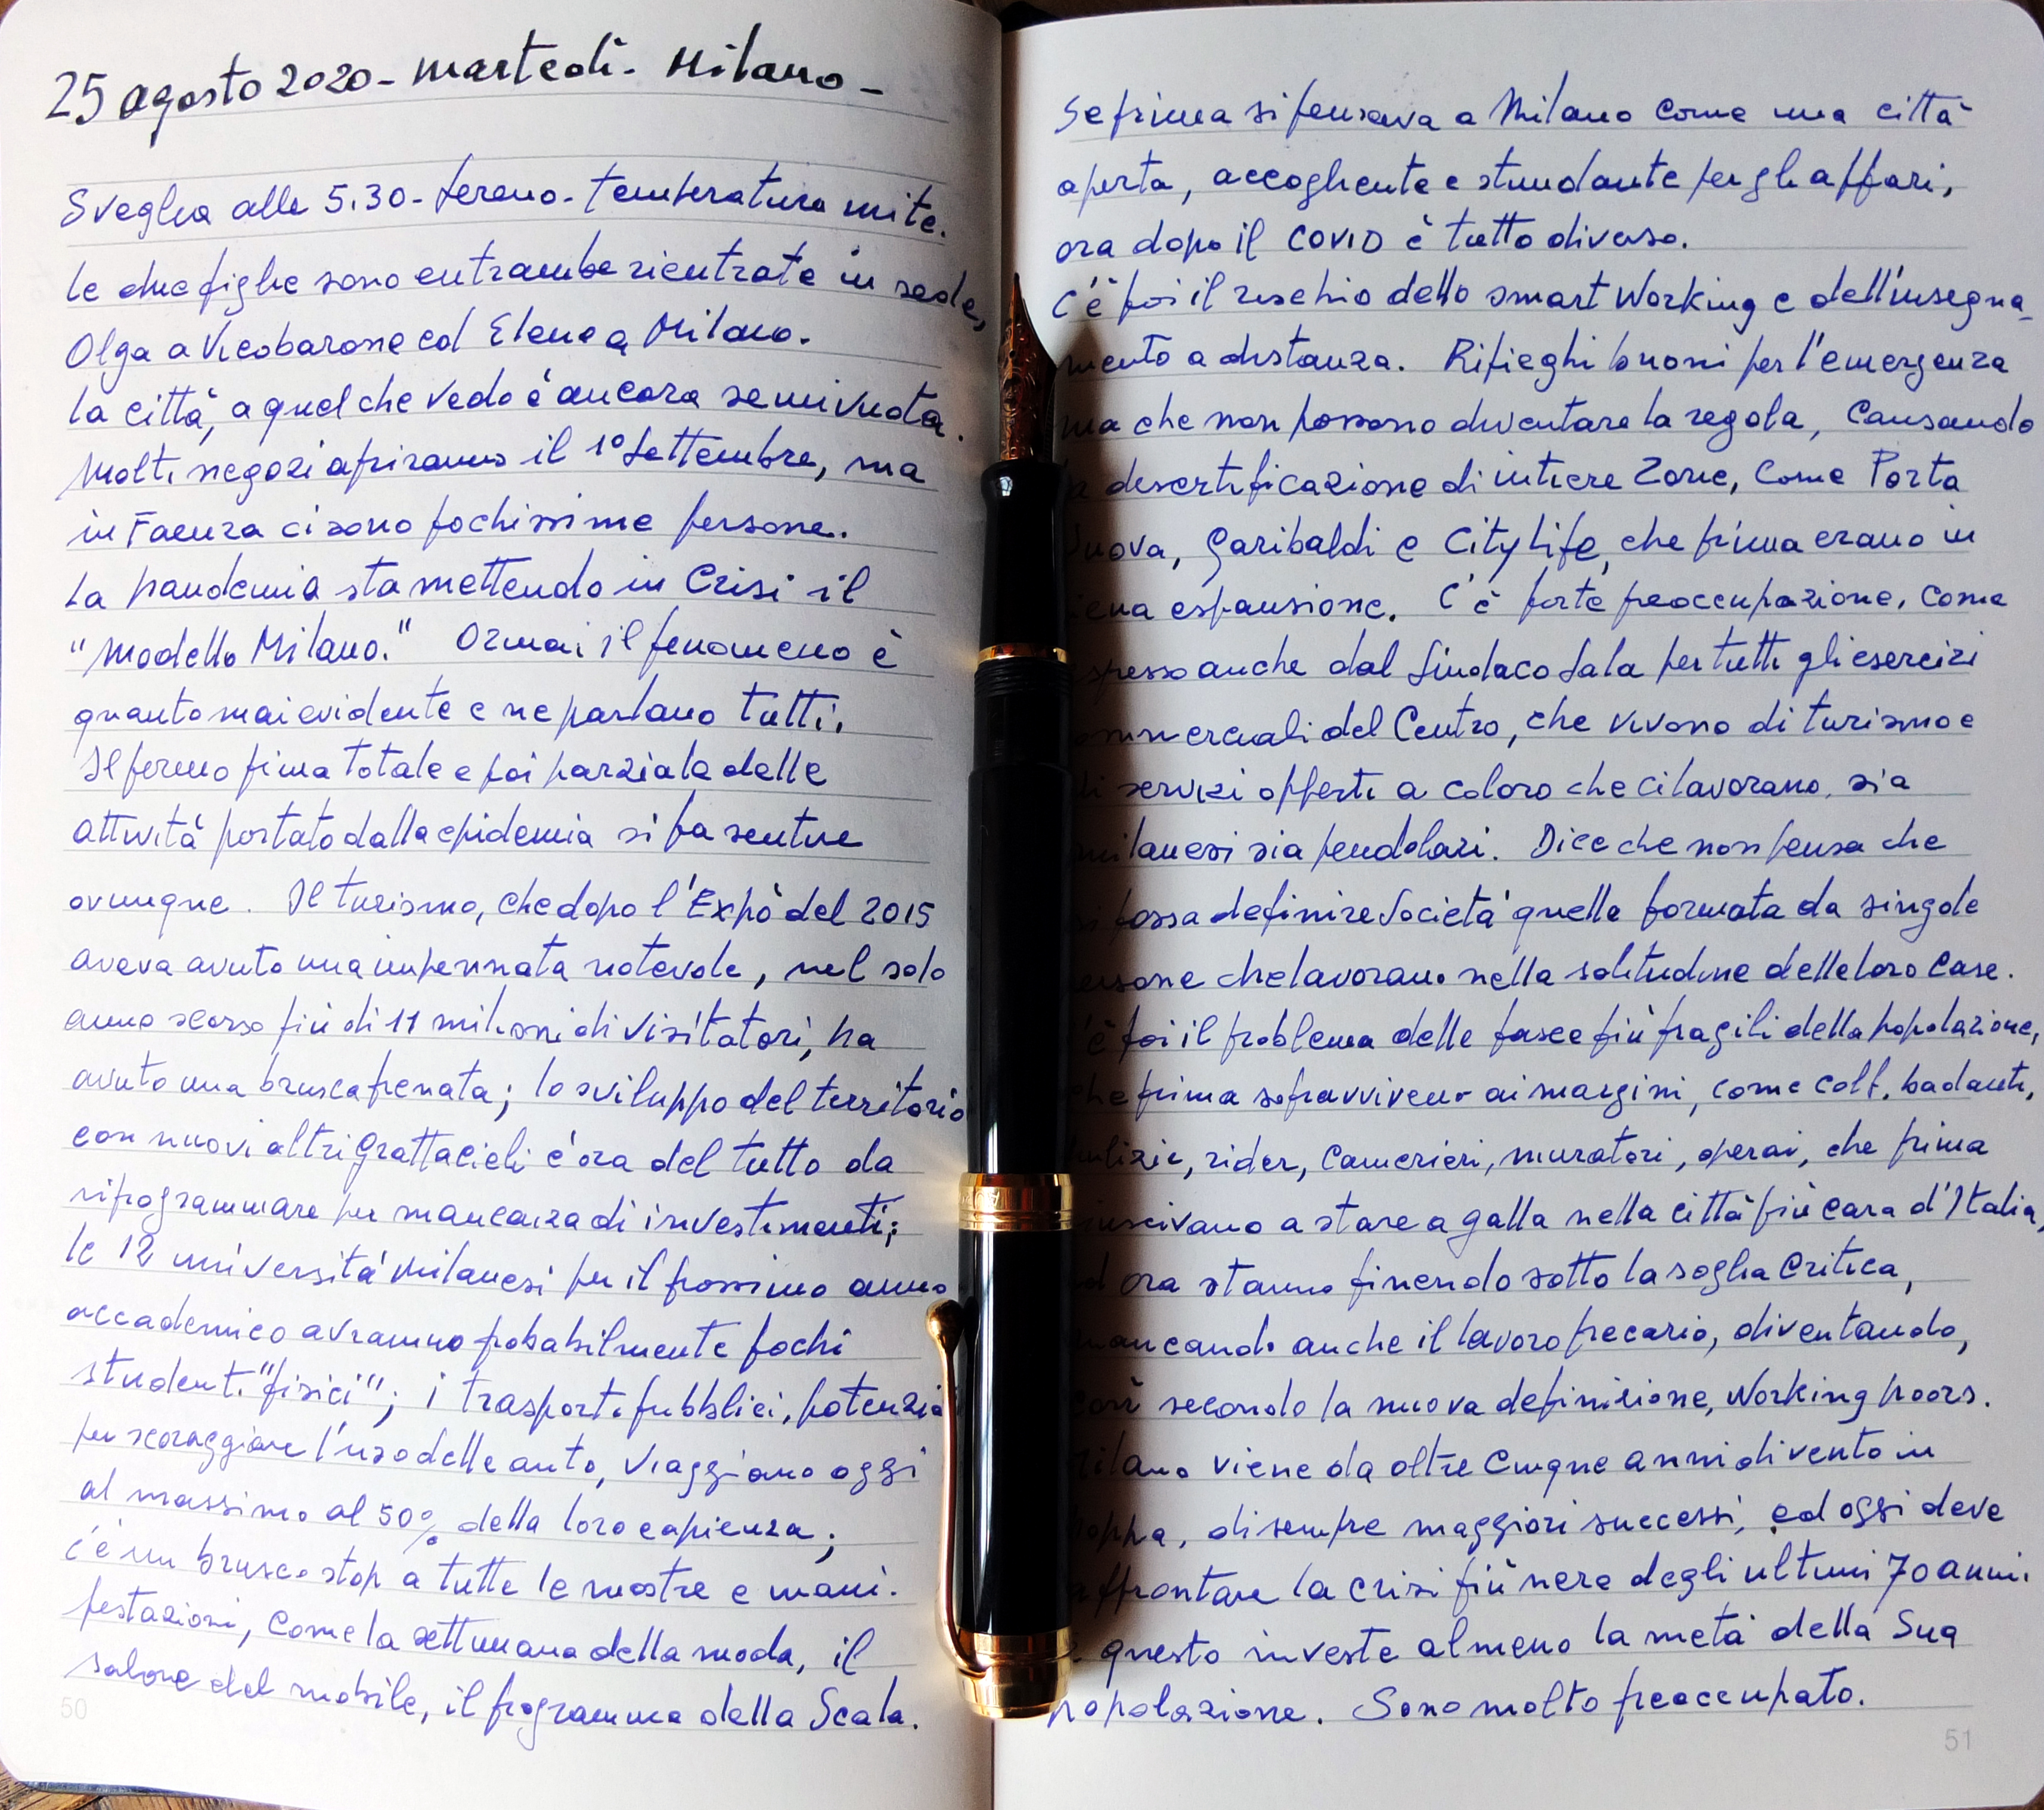 25 agosto 2020 - martedì - Milano -
Sveglia alle 5.30 - sereno - temperatura mite.
le due figlie sono entrambe rientrate in sede,
Olga a Vicobarone ed Elena a Milano.
la città, a quel che vedo è ancora semivuota.
Molti negozi apriranno il 1° Settembre, ma
in Faenza ci sono pochissime persone.
La pandemia sta mettendo in crisi il
"Modello Milano." Ormai il fenomeno è
quanto mai evidente e ne parlano tutti.
Il fermo prima totale e poi parziale delle
attività portato dalla epidemia si fa sentire
ovunque. Il turismo, che dopo l'Expò del 2015
aveva avuto una impennata notevole, nel solo
anno scorso più di 11 milioni di visitatori, ha
avuto una brusca frenata; lo sviluppo del territorio
con nuovi altri grattacieli è ora del tutto da
riprogrammare per mancanza di investimenti;
le 12 università milanesi per il prossimo anno
accademico avranno probabilmente pochi
studenti "fisici"; i trasporti pubblici, potenzia
per scoraggiare l'uso delle auto, viaggiano oggi
al massimo al 50% della loro capienza;
c'è un brusco stop a tutte le mostre e mani-
festazioni, come la settimana della moda, il
salone del mobile, il programma della Scala.
50
Se prima si pensava a Milano come una città
aperta, accogliente e stimolante per gli affari,
ora dopo il COVID è tutto diverso.
C'è poi il rischio dello smart working e dell'insegna-
mento a distanza. Ripieghi buoni per l'emergenza
ma che non possono diventare la regola, causando
la desertificazione di intiere zone, come Porta
Nuova, Garibaldi e City Life, che prima erano in
iena espansione. C'è forte preoccupazione, come
spresso anche dal Sindaco Sala per tutti gli esercizi
ommerciali del Centro, che vivono di turismo e
di servizi offerti a coloro che ci lavorano, sia
milanesi sia pendolari. Dice che non pensa che
si possa definire Società quella formata da singole
ersone che lavorano nella solitudine delle loro case.
'è poi il problema delle fasce più fragili della popolazione,
che prima sopravviveno ai margini, come colf, badanti,
pulizie, rider, camerieri, muratori, operai, che prima
iuscivano a stare a galla nella città più cara d'Italia,
d ora stanno finendo sotto la soglia critica,
mancando anche il lavoro precario, diventando,
così secondo la nuova definizione, working poors.
Milano viene da oltre cinque anni di vento in
poppa, di sempre maggiori successi, ed oggi deve
affrontare la crisi più nera degli ultimi 70 anni.
questo investe almeno la metà della sua
popolazione. Sono molto preoccupato.
51